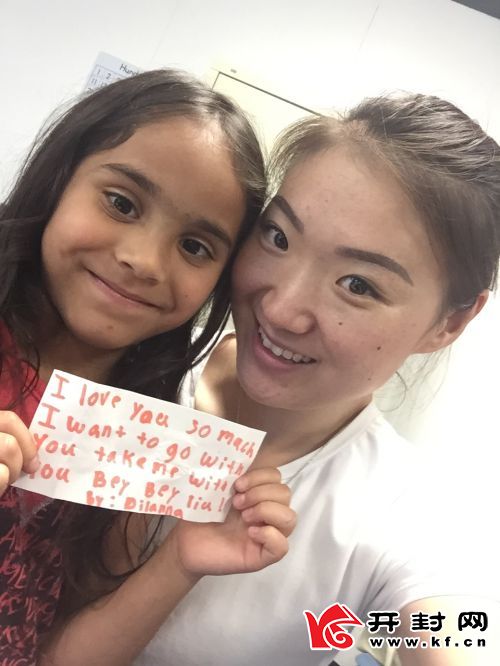 Hund
I love yau so mach
I want to go with
You take me with
You Bey Bey liu !
By: Dilanna
开封网
www.kf.cn